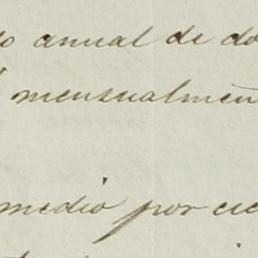 o anual de do
mensualmen
medio por cie